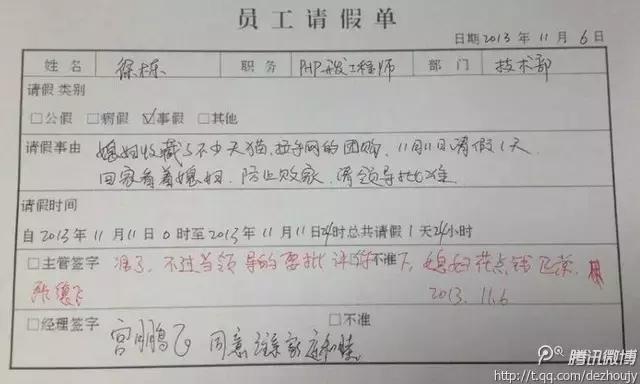 员工请假单
日期 2013 年 11 月 6 日
姓名 徐栋 职务 PHP开发工程师 部门 技术部
请假 类别
□公假 □病假 ☑事假 □其他
请假事由 媳妇收藏了不少天猫,拉手网的团购,11月11日请假1天
回家看着媳妇,防止败家,请领导批准
请假时间
自 2013 年 11 月 11 日 0 时至 2013 年 11 月 11 日 24 时总共请假 1 天 24 小时
□主管签字 准了,不过当领导的要批评你下,媳妇花点钱 □不准
2013.11.6
□经理签字 宫鹏飞 同意 家庭和睦 □不准
腾讯微博
http://t.qq.com/dezhoujy